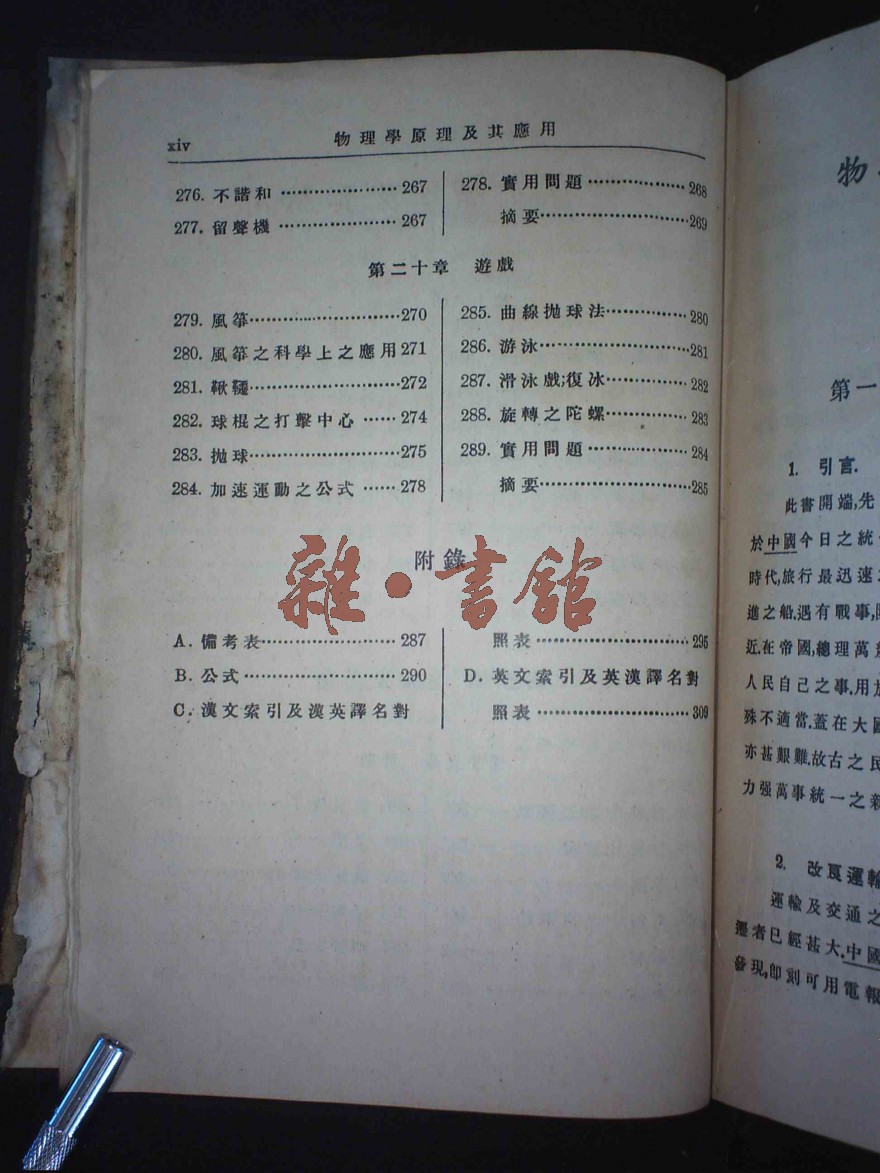 xiv 物理學原理及其應用
276. 不諧和 …………………… 267
277. 留聲機 …………………… 267
278. 實用問題 ……………… 268
摘要 ……………………… 269
第二十章 遊戲
279. 風箏 ……………………… 270
280. 風箏之科學上之應用 271
281. 鞦韆 ……………………… 272
282. 球棍之打擊中心 …… 274
283. 拋球 ……………………… 275
284. 加速運動之公式 …… 278
285. 曲線拋球法 …………… 280
286. 游泳 ……………………… 281
287. 滑泳戲;復冰 …………… 282
288. 旋轉之陀螺 …………… 283
289. 實用問題 ……………… 284
摘要 ……………………… 285
附錄
雜·書館
A. 備考表 …………………… 287
B. 公式 ……………………… 290
C. 漢文索引及漢英譯名對
照表 ……………………… 295
D. 英文索引及英漢譯名對
照表 ……………………… 309
物
第一
1. 引言.
此書開端,先
於中國今日之統
時代,旅行最迅速
進之船,遇有戰事,
近.在帝國,總理萬
人民自己之事,用於
殊不適當.蓋在大國
亦甚艱難,故古之民
力强萬事統一之新
2. 改良運輸
運輸及交通之
遷者已經甚大.中國
發現,即刻可用電報